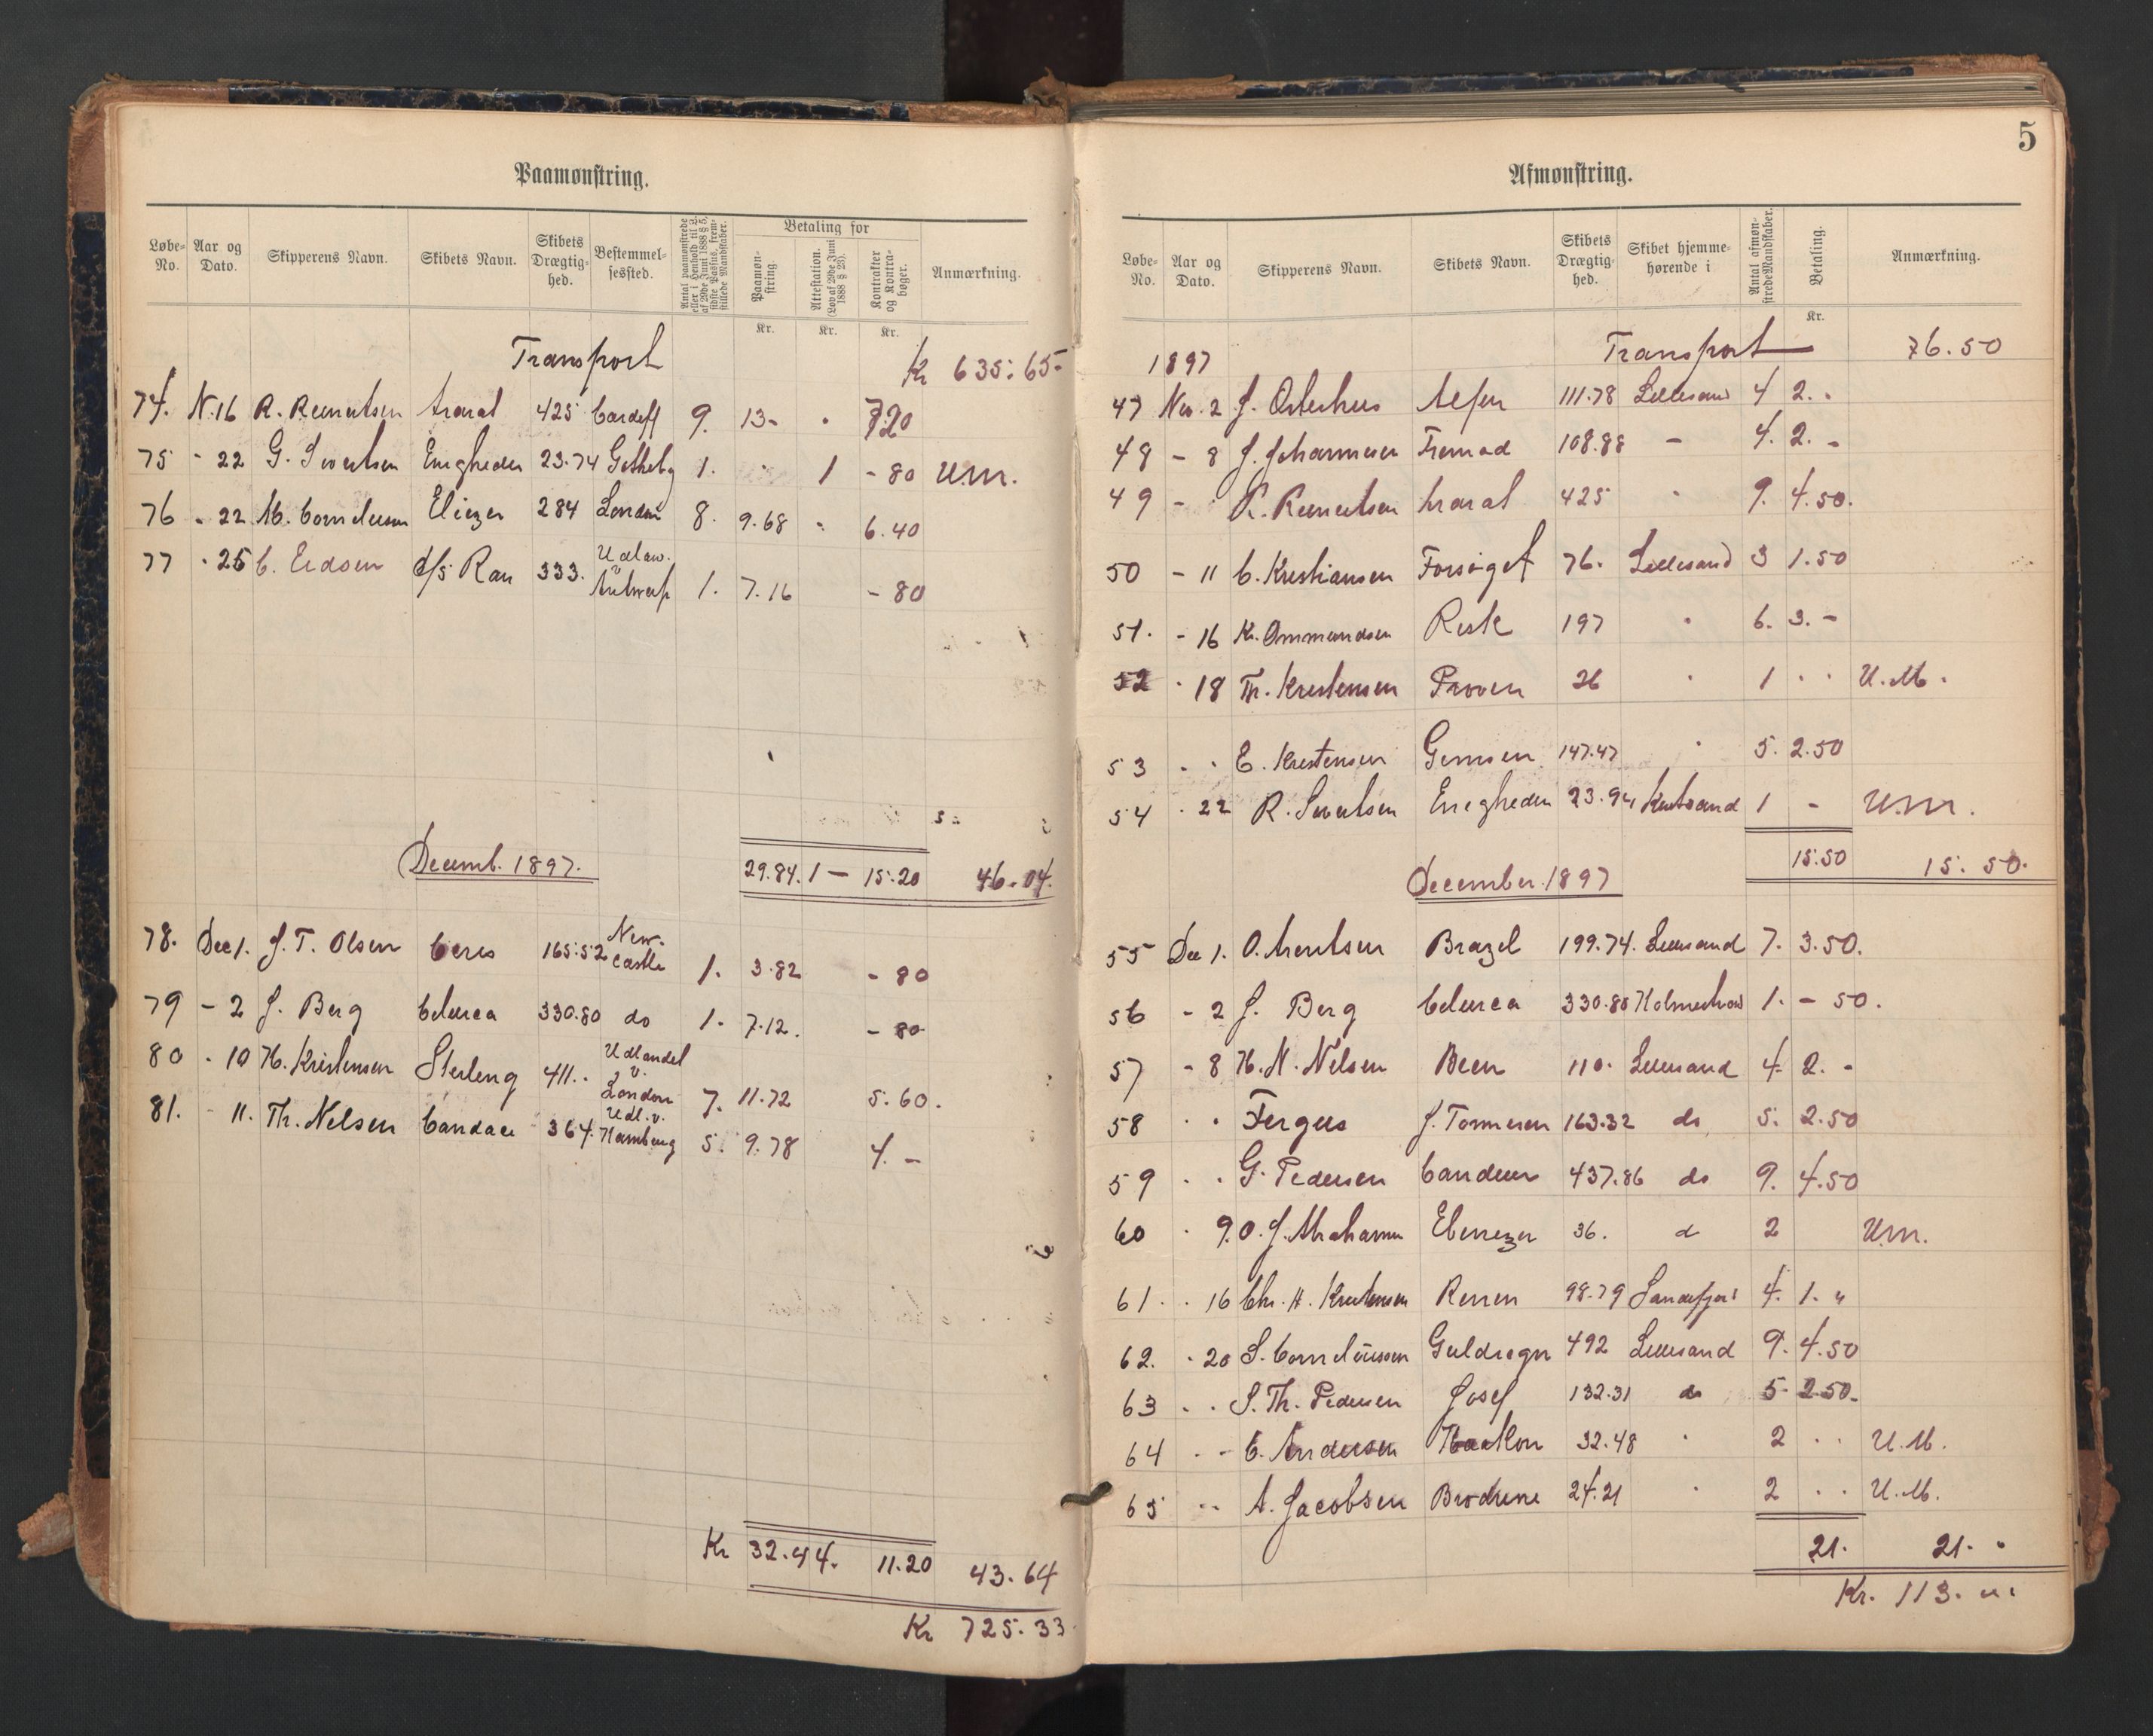 Paamønstring.
Løbe-No. Aar og Dato. Skipperens Navn. Skibets Navn. Skibets Drægtig-hed. Bestemmel-sessted. Antal paamønstrede eller i Henhold til L. af 29de Juni 1888 § 5, sidste Passus, frem-stillede Mandskaber. Betaling for Paamøn-string. Attestation. (Lov af 29de Juni 1888 § 23). Kontrakter og Kontra-bøger. Anmærkning.
Kr. Kr. Kr.
Transport Kr 635.65
74. N. 16 R. Reinertsen Ararat 425 Cardeff 9. 13- " 7.20
75 - 22 G. Sivertsen Enigheden 23.74 Gothebg 1. " 1 - 80 U.M.
76 - 22 M. Corneliussen Eliezer 284 London 8. 9.68 " 6.40
77 " 25 C. Eidsen d/s Ran 333. Udlan. v Antwerp 1. 7.16 - 80
29.84. 1 — 15.20 46.04.
Decemb. 1897.
78. Dec 1. J. T. Olsen Ceres 165.52 New-castle 1. 3.82 - 80
79 - 2 J. Berg Celurca 330.80 do 1. 7.12. - 80
80 - 10 H. Kristensen Sterling 411. Udlandet v. London 7. 11.72 5.60.
81. - 11. Th. Nelsen Candace 364. Udl. v. Hamburg 5. 9.78 4. -
Kr 32.44. 11.20 43.64
Kr 725.33
5
Afmønstring.
Løbe-No. Aar og Dato. Skipperens Navn. Skibets Navn. Skibets Drægtig-hed. Skibet hjemme-hørende i Antal afmøn-strede Mandskaber. Betaling. Anmærkning.
Kr.
1897 Transport 76.50
47 Nov. 2 J. Osterhus Alfen 111.78 Lillesand 4 2. "
48 - 8 J. Johannesen Fremad 108.88 - 4. 2. -
49 - " R. Reinertsen Ararat 425 " 9. 4.50.
50 - 11 C. Kristiansen Forsøget 76. Lillesand 3 1.50
51. - 16 K. Ommundsen Resk 197 " 6. 3. -
52 " 18 Th. Kristensen Prøven 26 " 1 " " U.M.
53 " " E. Kristensen Gemsen 147.47 " 5. 2.50
54 " 22 R. Sivertsen Enigheden 23.94 Kristsand 1 - U.M.
15.50 15.50.
December 1897
55 Dec 1. O. Arentsen Brazil 199.74. Lillesand 7. 3.50.
56 - 2 J. Berg Celurca 330.80 Holmestrand 1. - 50.
57 - 8 H. N. Nilsen Bien 110. Lillesand 4. 2. -
58 " " Fergus J. Tønnesen 163.32 do 5. 2.50
59 " " G. Pedersen Candeur 437.86 do 9. 4.50
60 " 9. O. J. Abrahamsen Ebenezer 36. d 2 U.M.
61. " 16 Chr. H. Kristensen Renen 98.79 Sandefjord 4. 1. "
62. " 20 S. Corneliussen Guldregn 492 Lillesand 9. 4.50
63 " " S. Th. Pedersen Josef 132.31 do 5. 2.50.
64 " " C. Andersen 32.48 " 2 " " U.M.
65 " " A. Jacobsen Brødrene 24.21 " 2 " " U.M.
21. 21. "
Kr. 113. "